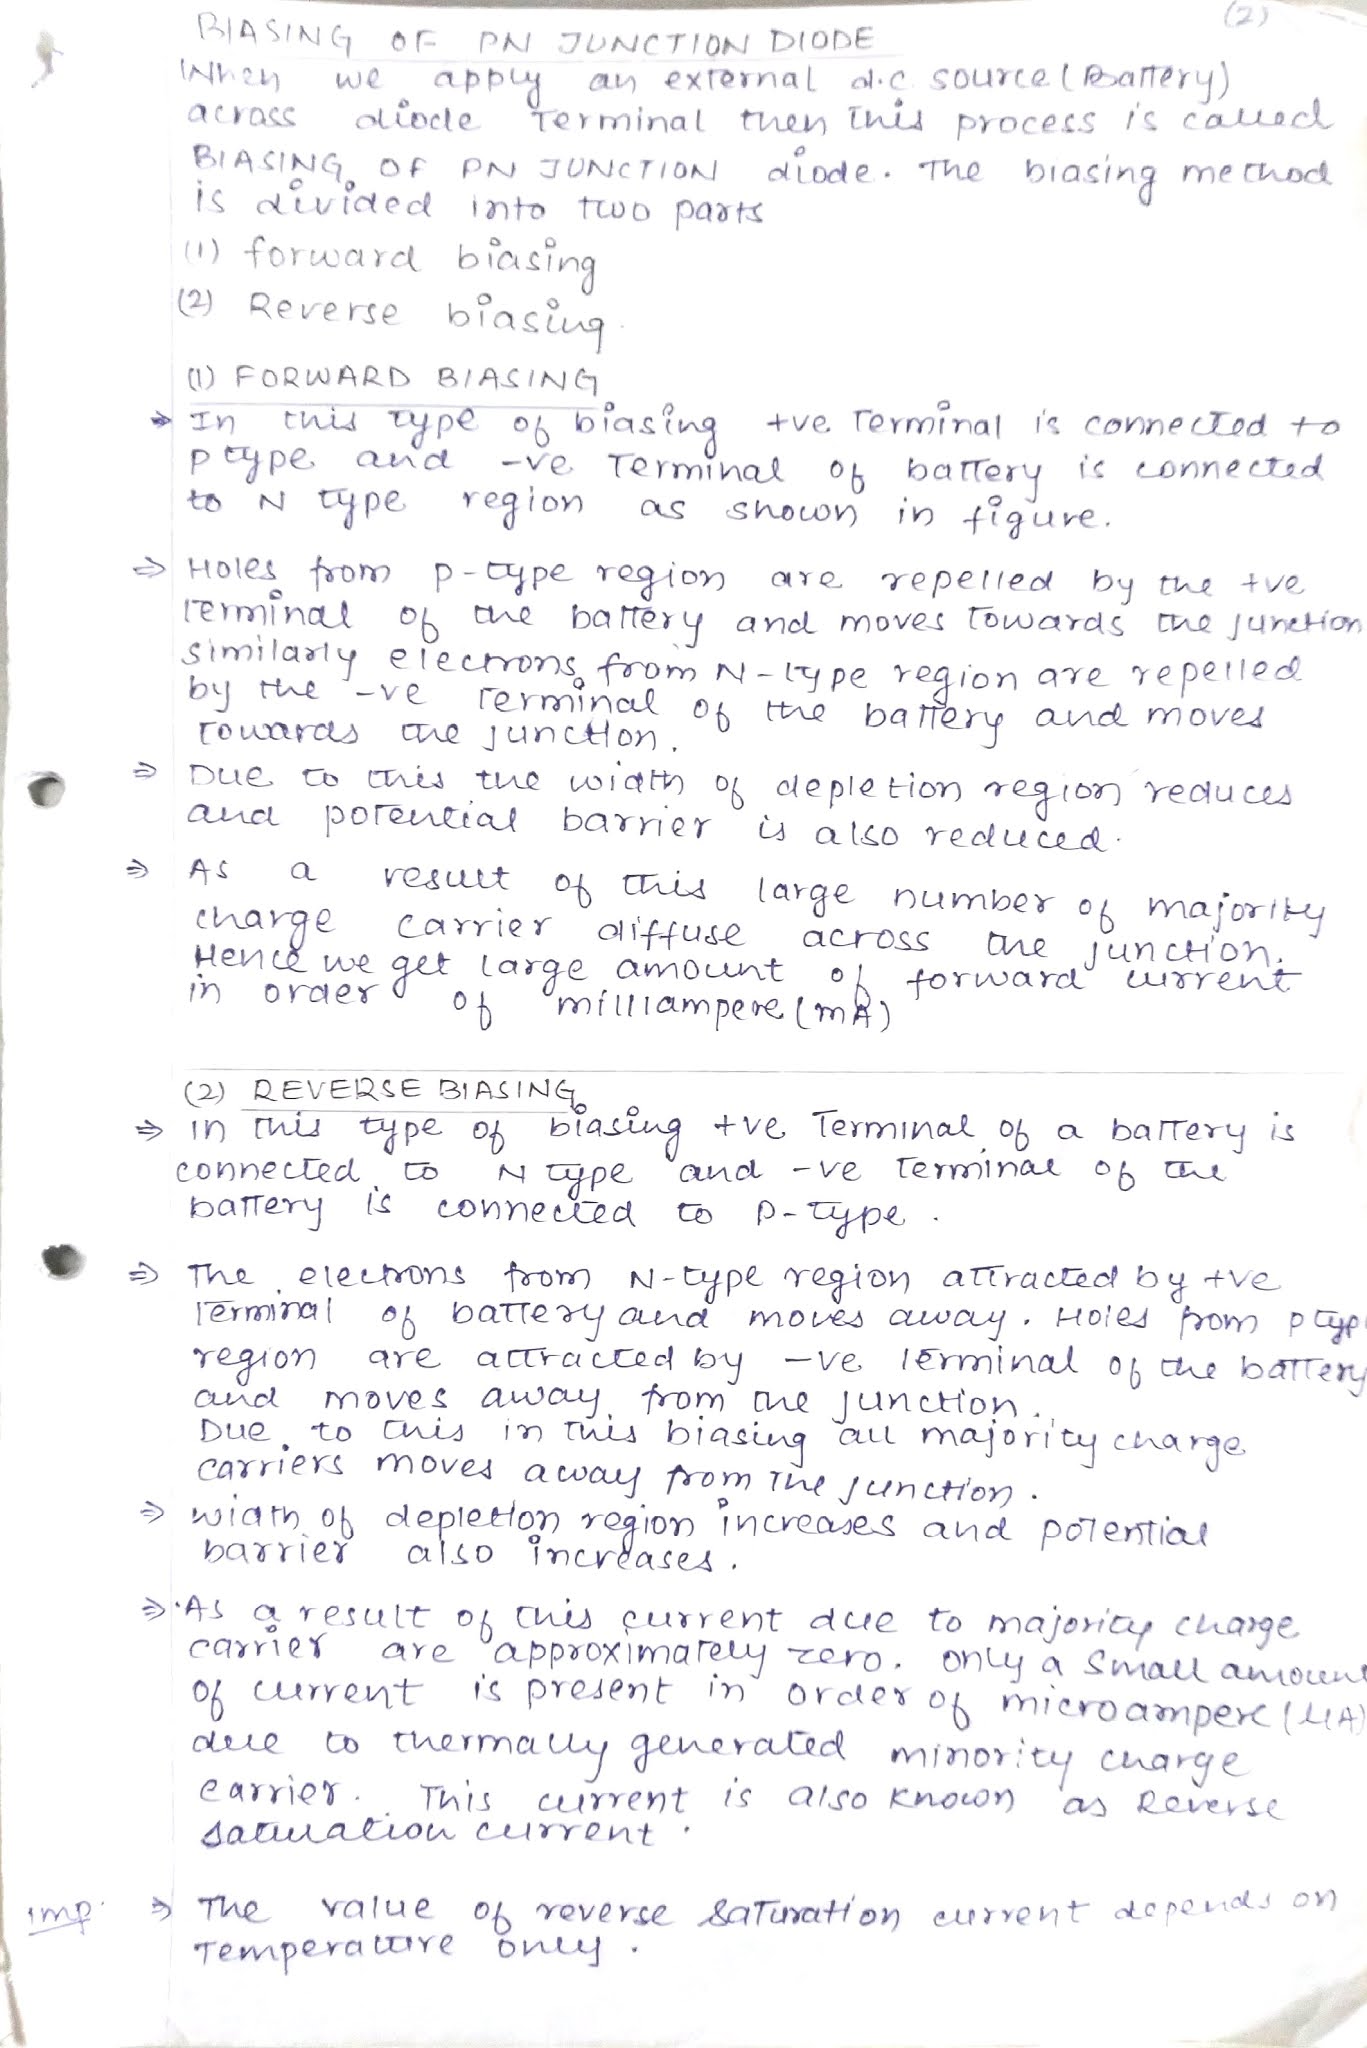 (2)
BIASING OF PN JUNCTION DIODE
When we apply an external d.c. source (Battery)
across diode Terminal then this process is called
BIASING OF PN JUNCTION diode. The biasing method
is divided into two parts
(1) forward biasing
(2) Reverse biasing.
(1) FORWARD BIASING
⇒ In this type of biasing +ve Terminal is connected to
P type and -ve Terminal of battery is connected
to N type region as shown in figure.
⇒ Holes from p-type region are repelled by the +ve
Terminal of the battery and moves Towards the junction
similarly electrons from N-type region are repelled
by the -ve Terminal of the battery and moves
Towards the junction.
⇒ Due to this the width of depletion region reduces
and potential barrier is also reduced.
⇒ As a result of this large number of majority
charge carrier diffuse across the junction.
Hence we get large amount of forward current
in order of milliampere (mA)
(2) REVERSE BIASING
⇒ in this type of biasing +ve Terminal of a battery is
connected to N type and -ve Terminal of the
battery is connected to P-type.
⇒ The electrons from N-type region attracted by +ve
Terminal of battery and moves away. Holes from p type
region are attracted by -ve Terminal of the battery
and moves away from the junction.
Due to this in this biasing all majority charge
carriers moves away from the junction.
⇒ width of depletion region increases and potential
barrier also increases.
⇒ As a result of this current due to majority charge
carrier are approximately zero. only a small amount
of current is present in order of microampere (μA)
due to thermally generated minority charge
carrier. This current is also known as Reverse
saturation current.
imp. ⇒ The value of reverse saturation current depends on
Temperature only.